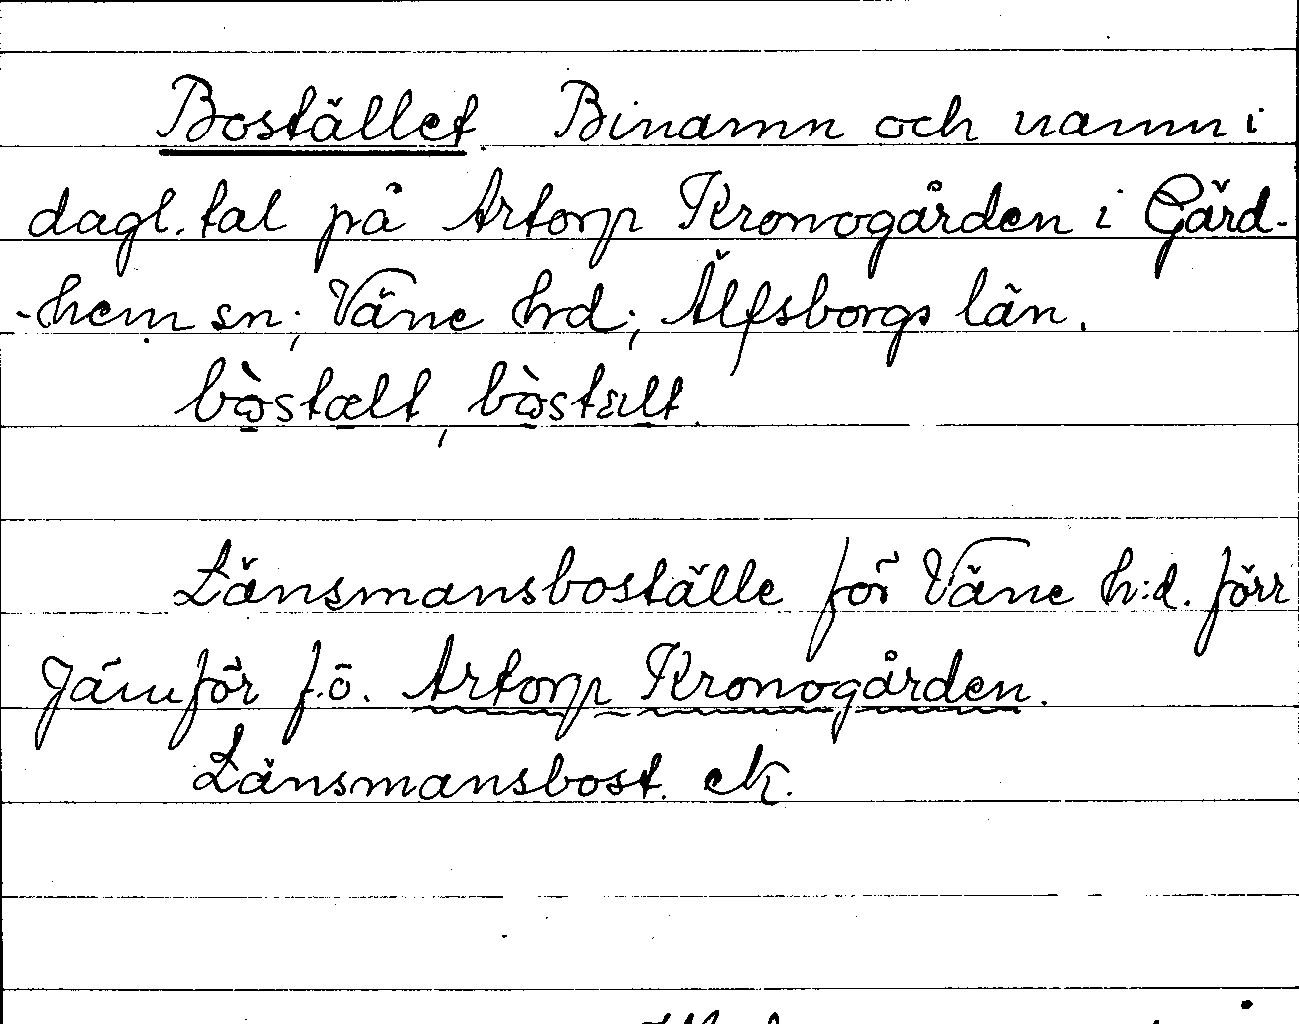 Bostället. Binamn och namn i
dagl. tal på Artorp Kronogården i Gärd-
-hem sn; Väne hrd; Älfsborgs län.
bòstælt, bòstält.
Länsmansboställe för Väne h:d. förr
Jämför f.ö. Artorp Kronogården.
Länsmansbost. ek.